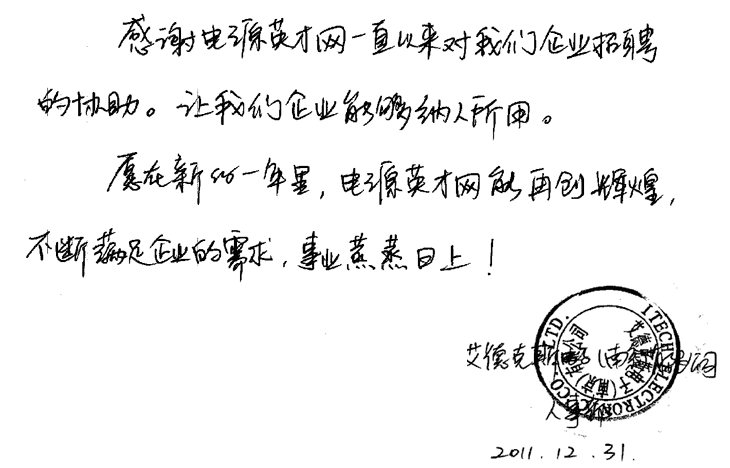 感谢电源英才网一直以来对我们企业招聘
的协助。让我们企业能够纳人所用。
愿在新的一年里，电源英才网能再创辉煌，
不断满足企业的需求，事业蒸蒸日上！
艾德克斯电子(南京)有限公司
人事部
2011.12.31.
ITECH ELECTRONIC CO., LTD.
艾德克斯电子(南京)有限公司